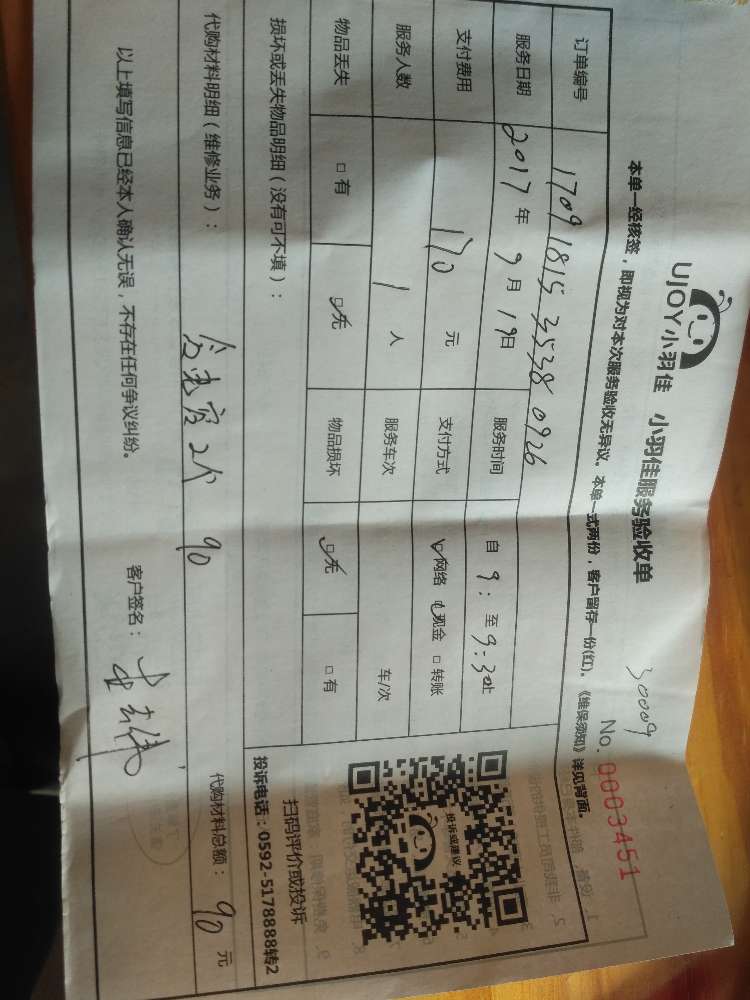 UJOY小羽佳 小羽佳服务验收单
30009
No. 0003451
本单一经核签，即视为对本次服务验收无异议。本单一式两份，客户留存一份(红)。《维保须知》详见背面。
订单编号 1709 1815 3538 0926
服务日期 2017年 9月 19日 服务时间 自 9: 至 9:30止
支付费用 170 元 支付方式 网络 现金 □ 转账
服务人数 1 人 服务车次 车/次
物品丢失 □ 有 □ 无 物品损坏 □ 无 □ 有
损坏或丢失物品明细（没有可不填）：
投诉或建议
扫码评价或投诉
投诉电话：0592-5178888转2
代购材料明细（维修业务）： 2个 90 代购材料总额： 90 元
以上填写信息已经本人确认无误，不存在任何争议纠纷。 客户签名：